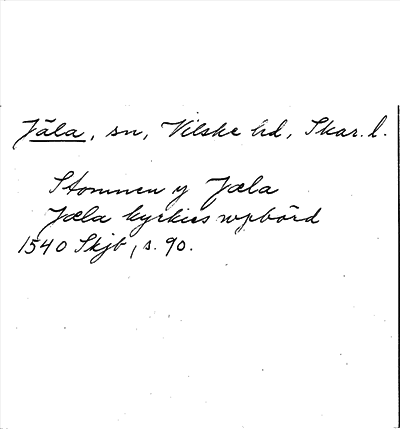 Jäla, sn, Vilske hd, Skar. l.
Stommen y Jæla
Jæla kyrkies wpbörd
1540 Skjb, s. 90.